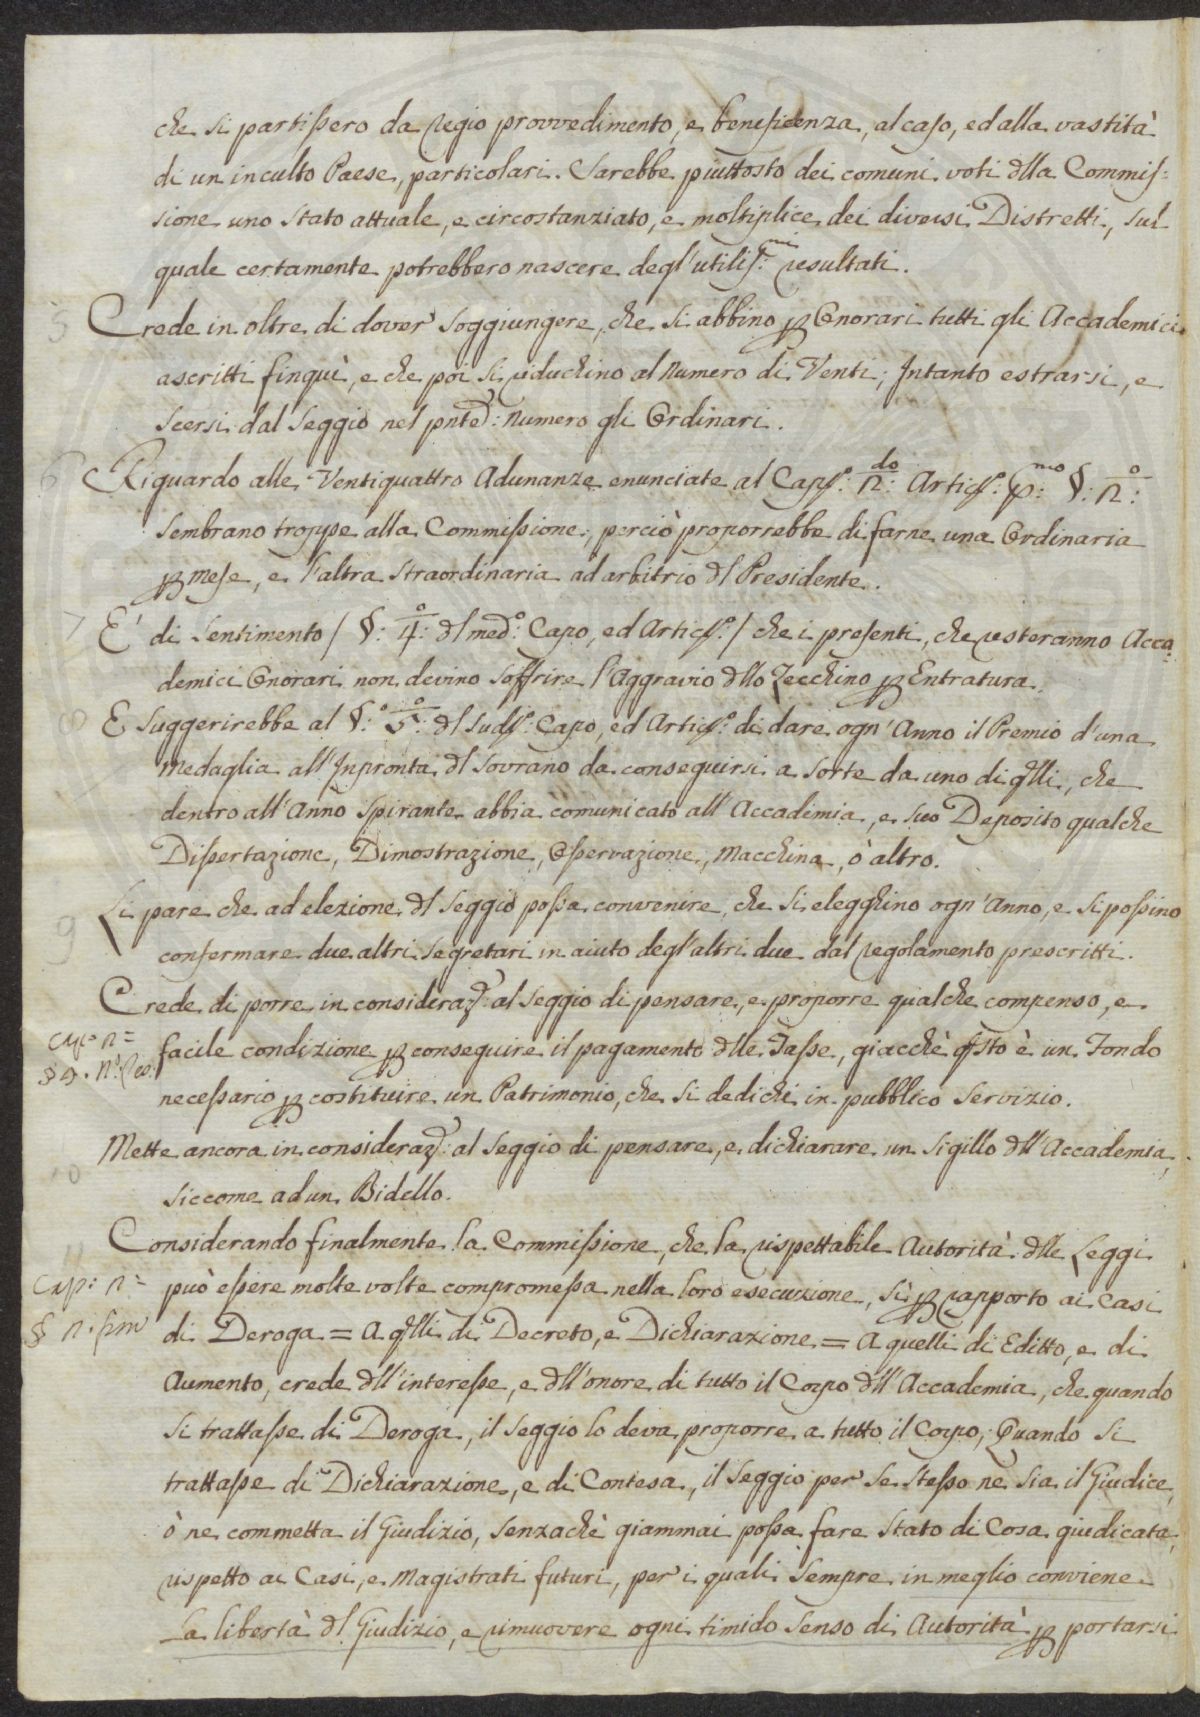 che si partissero da regio provvedimento, e beneficenza, al caso, ed alla vastità
di un inculto Paese, particolari. Sarebbe piuttosto dei comuni voti dlla Commis=
sione uno stato attuale, e circostanziato, e moltiplice dei diversi Distretti, sul
quale certamente potrebbero nascere degl'utilis:mi resultati.
5
Crede in oltre di dover soggiungere, che si abbino p Onorari tutti gli Accademici
ascritti finqui, e che poi si riduchino al numero di Venti; Intanto estrarsi, e
Scersi dal Seggio nel pnte: numero gli Ordinari.
6
Riguardo alle Ventiquattro Adunanze enunciate al Cap: 2:do Artic: p:mo §: 2:o
Sembrano troppe alla Commissione; perciò proporrebbe di farne una Ordinaria
p mese, e l'altra straordinaria ad arbitrio dl Presidente.
7
E' di Sentimento / §: 4:o dl med:o Capo, ed Artic:o / che i presenti, che resteranno Acca=
demici Onorari non devino soffrire l'Aggravio dllo Zecchino p Entratura.
8
E Suggerirebbe al §:o 5:o dl Sud:o Capo, ed Artic:o di dare ogn'Anno il Premio d'una
medaglia all'Inpronta dl Sovrano da conseguirsi a sorte da uno di qlli, che
dentro all'Anno Spirante abbia comunicato all'Accademia, e suo Deposito qualche
Dissertazione, Dimostrazione, Osservazione, Macchina, ò altro.
9
Li pare che ad elezione dl Seggio possa convenire, che si elegghino ogn'Anno, e si possino
confermare due altri Segretari in aiuto degl'altri due dal regolamento prescritti.
Crede di porre in consideraz: al Seggio di pensare, e proporre qualche compenso, e
facile condizione p conseguire il pagamento dlle Tasse, giacchè qsto è un Fondo
necessario p costituire un Patrimonio, che si dedichi in pubblico servizio.
10
Mette ancora in consideraz: al Seggio di pensare, e dichiarare un Sigillo dll'Accademia,
siccome ad un Bidello.
11
Considerando finalmente la Commissione, che la rispettabile Autorità dlle Leggi
Cap: 2=
può essere molte volte compromessa nella loro esecuzione, sì p rapporto ai Casi
di Deroga = A qlli di Decreto, e Dichiarazione = A quelli di Editto, e di
Aumento, crede dll'interesse, e dll'onore di tutto il Corpo dll'Accademia, che quando
si trattasse di Deroga, il Seggio lo deva proporre a tutto il Corpo; Quando si
trattasse di Dichiarazione, e di Contesa, il Seggio per Se Stesso ne sia il Giudice,
ò ne commetta il Giudizio, senzachè giammai possa fare stato di Cosa giudicata,
rispetto ai Casi, e Magistrati futuri, per i quali sempre in meglio conviene
la libertà dl Giudizio, e rimuovere ogni timido senso di Autorità p portarsi